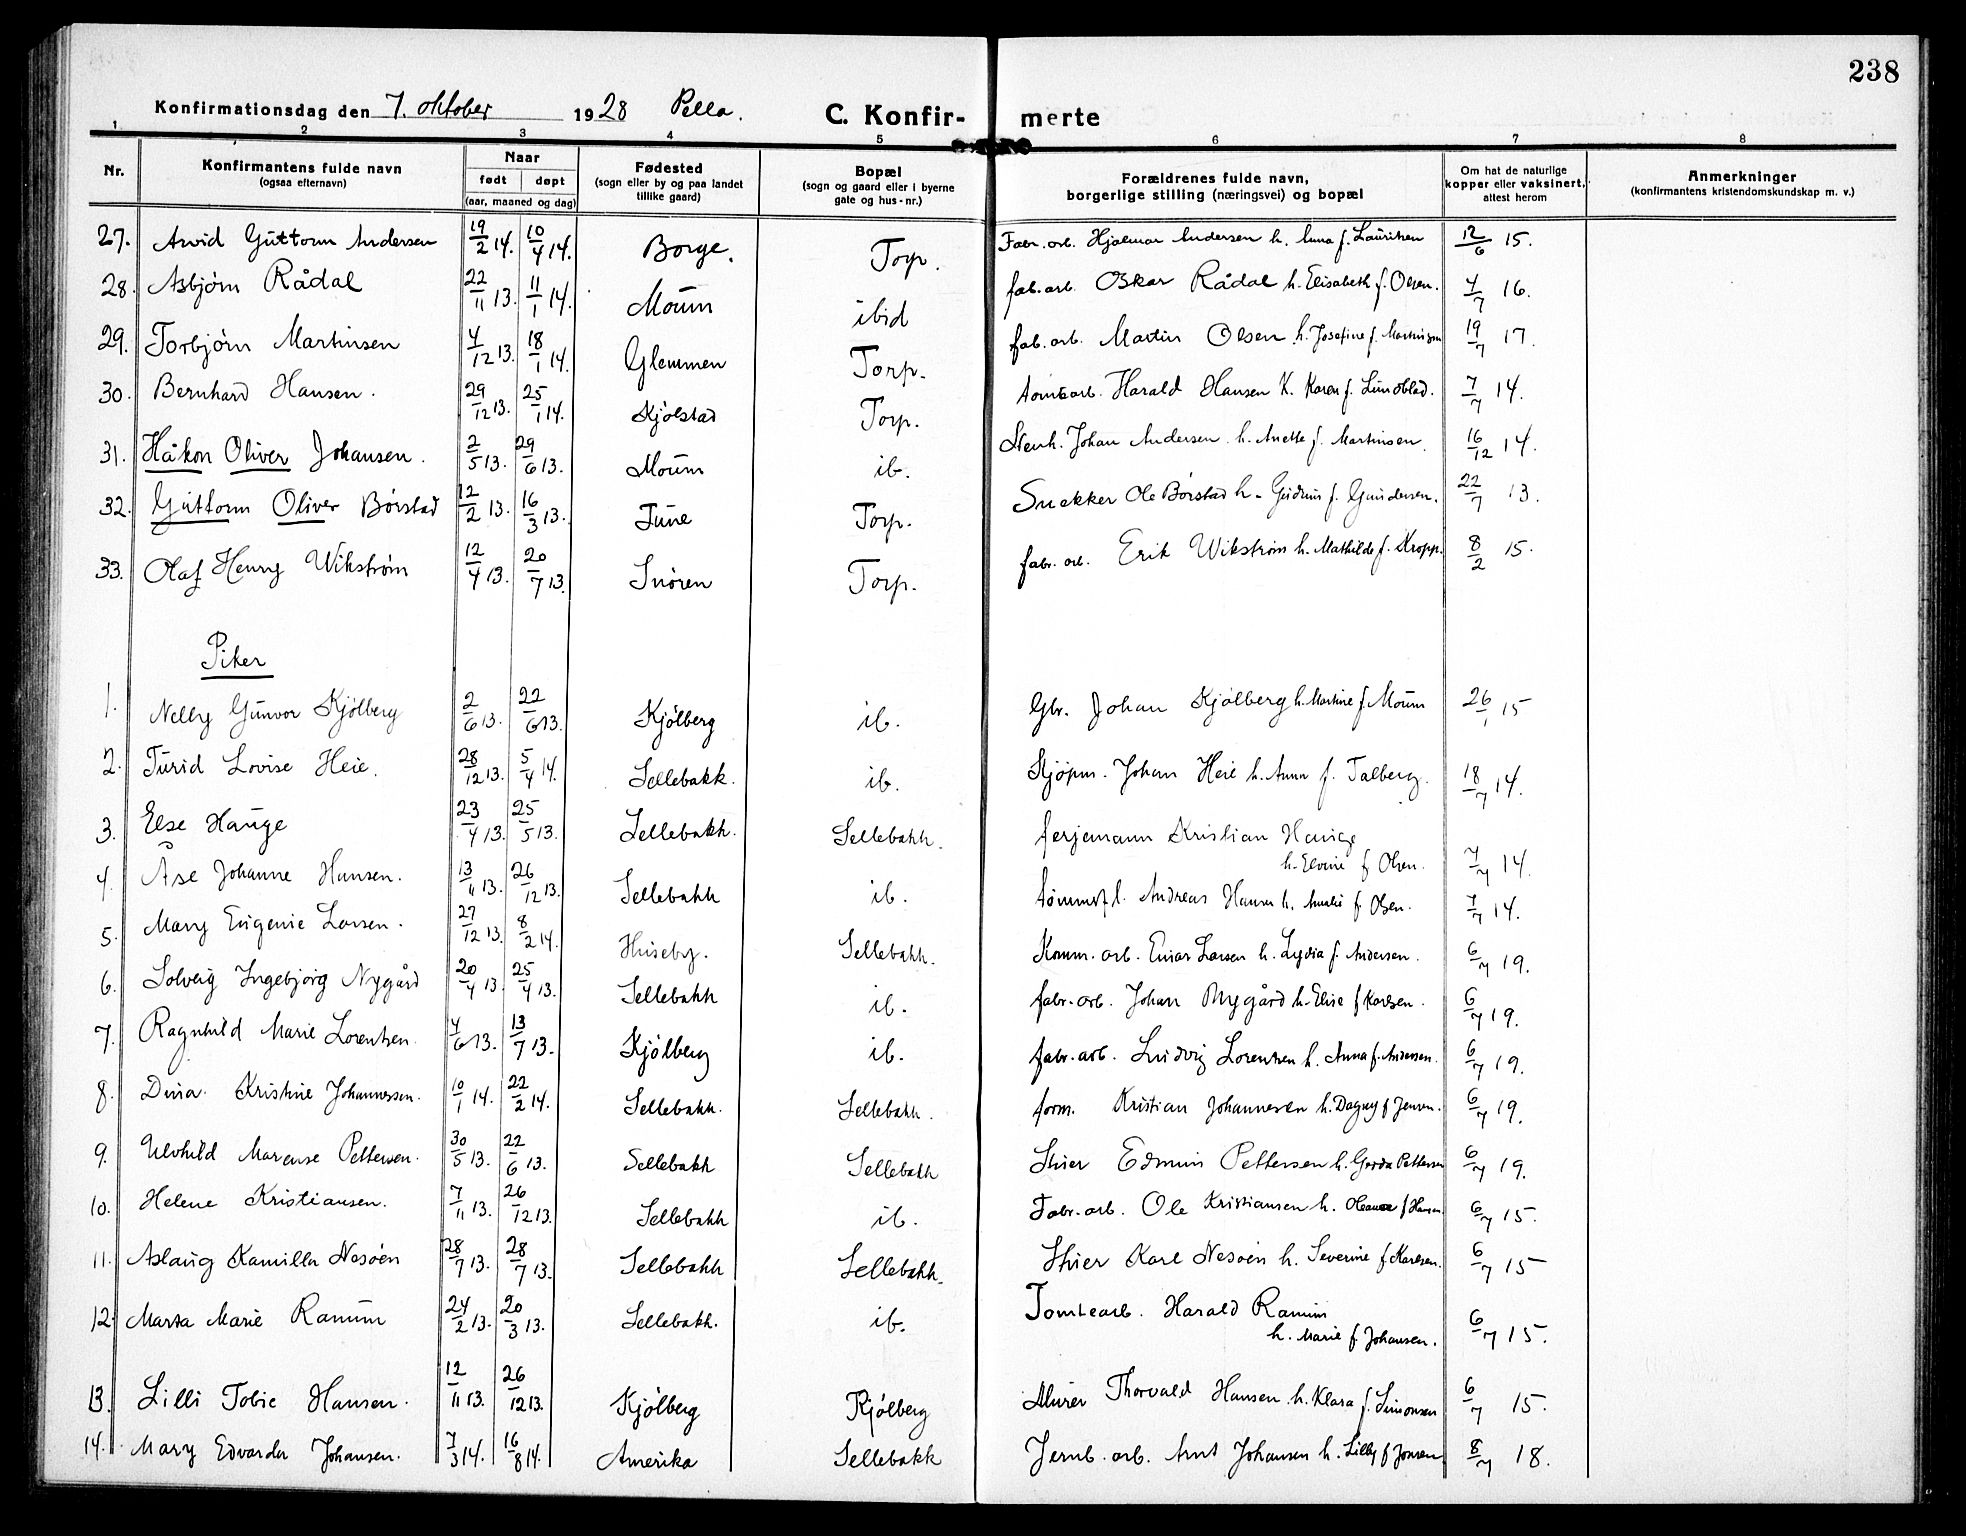 238
Konfirmationsdag den 7. oktober 1928 Pella. C. Konfir- merte
1 2 3 4 5 6 7 8
Nr. Konfirmantens fulde navn (ogsaa efternavn) Naar født døpt (aar, maaned og dag) Fødested (sogn eller by og paa landet tillike gaard) Bopæl (sogn og gaard eller i byerne gate og hus-nr.) Forældrenes fulde navn, borgerlige stilling (næringsvei) og bopæl Om hat de naturlige kopper eller vaksinert, attest herom Anmerkninger (konfirmantens kristendomskundskap m. v.)
27. Arvid Guttorm Andersen 19/2 14. 10/4 14. Borge. Torp. Fabr. arb. Hjalmar Andersen h. Anna f. Lauritsen 12/6 15.
28. Asbjørn Rådal 22/11 13. 11/1 14. Moum ibid fab. arb. Oskar Rådal h. Elisabeth f. Olsen. 4/7 16.
29. Torbjörn Martinsen 4/12 13. 18/1 14. Glemmen Torp. fab. arb. Martin Olsen h. Josefine f. Martinsen 19/7 17.
30. Bernhard Hansen. 29/12 13. 25/1 14. Kjölstad Torp. tomtearb. Harald Hansen h. Karen f. Lundblad. 7/7 14.
31. Håkon Oliver Johansen. 2/5 13. 29/6 13. Moum ib. Stenh. Johan Andersen h. Anette f. Martinsen. 16/12 14.
32. Guttorm Oliver Börstad 12/2 13. 16/3 13. Tune Torp. Snekker Ole Börstad h. Gudrun f. Gundersen. 22/7 13.
33. Olaf Henry Wikström 12/4 13. 20/7 13. Torp. fabr. arb. Erik Wikström h. Mathilde f. Kropp. 8/2 15.
Piker
1. Nelly Gunvor Kjölberg 2/6 13. 22/6 13. Kjölberg ib. Gbr. Johan Kjölberg h. Martine f. Moum 26/1 15
2. Turid Lovise Heie. 28/12 13. 5/4 14. Sellebakk. ib. Kjöpm. Johan Heie h. Anna f. Talberg. 18/7 14.
3. Else Hauge 23/4 13. 25/5 13. Sellebakk. Sellebakk. ferjemann Kristian Hauge
h. Elvine f. Olsen. 7/7 14.
4. Åse Johanne Hansen. 13/11 13. 26/12 13. Sellebakk ib. tömmerfl. Andreas Hansen h. Amalie f. Olsen. 7/7 14.
5. Mary Eugenie Larsen. 27/12 13. 8/2 14. Huseby. Sellebakk. Komm. arb. Einar Larsen h. Lydia f. Andersen. 6/7 19.
6. Solveig Ingebjörg Nygård 20/4 13. 25/4 13. Sellebakk ib. fabr. arb. Johan Nygård h. Elise f. Karlsen. 6/7 19.
7. Ragnhild Marie Lorentzen. 4/6 13. 13/7 13. Kjölberg ib. fabr. arb. Ludvig Lorentzen h. Anna f. Andersen. 6/7 19.
8. Dina Kristine Johannessen. 10/1 14. 22/2 14. Sellebakk. Sellebakk. form. Kristian Johannesen h. Dagny f. Jensen. 6/7 19.
9. Ulvhild Marense Pettersen. 30/5 13. 22/6 13. Sellebakk Sellebakk Skier Edmun Pettersen h. Gerda Pettersen 6/7 19.
10. Helene Kristiansen. 7/11 13. 26/12 13. Sellebakk ib. Fabr. arb. Ole Kristiansen h. f. Hansen 6/7 15.
11. Aslaug Kamilla Nesöen 28/7 13. 28/7 13. Sellebakk Sellebakk. Karl Nesöen h. Severine f. Karlsen. 6/7 15
12. Marta Marie Ramm 24/2 13. 20/3 13. Sellebakk. ib. Tomtearb. Harald Ramm
h. Marie f. Johansen. 6/7 15.
13. Lilli Tobie Hansen. 12/11 13. 26/12 13. Kjölberg Kjölberg Murer Thorvald Hansen h. Klara f. Simonsen 6/7 15.
14. Mary Edvarda Johansen. 7/3 14. 16/8 14. Amerika Sellebakk Jernb. arb. Arnt Johansen h. Lilly f. Jonsen 8/7 18.